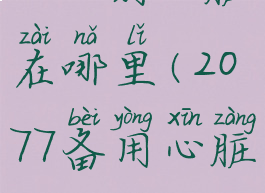 zài nǎ lǐ
在哪里(20
bèi yòng xīn zàng
77备用心脏